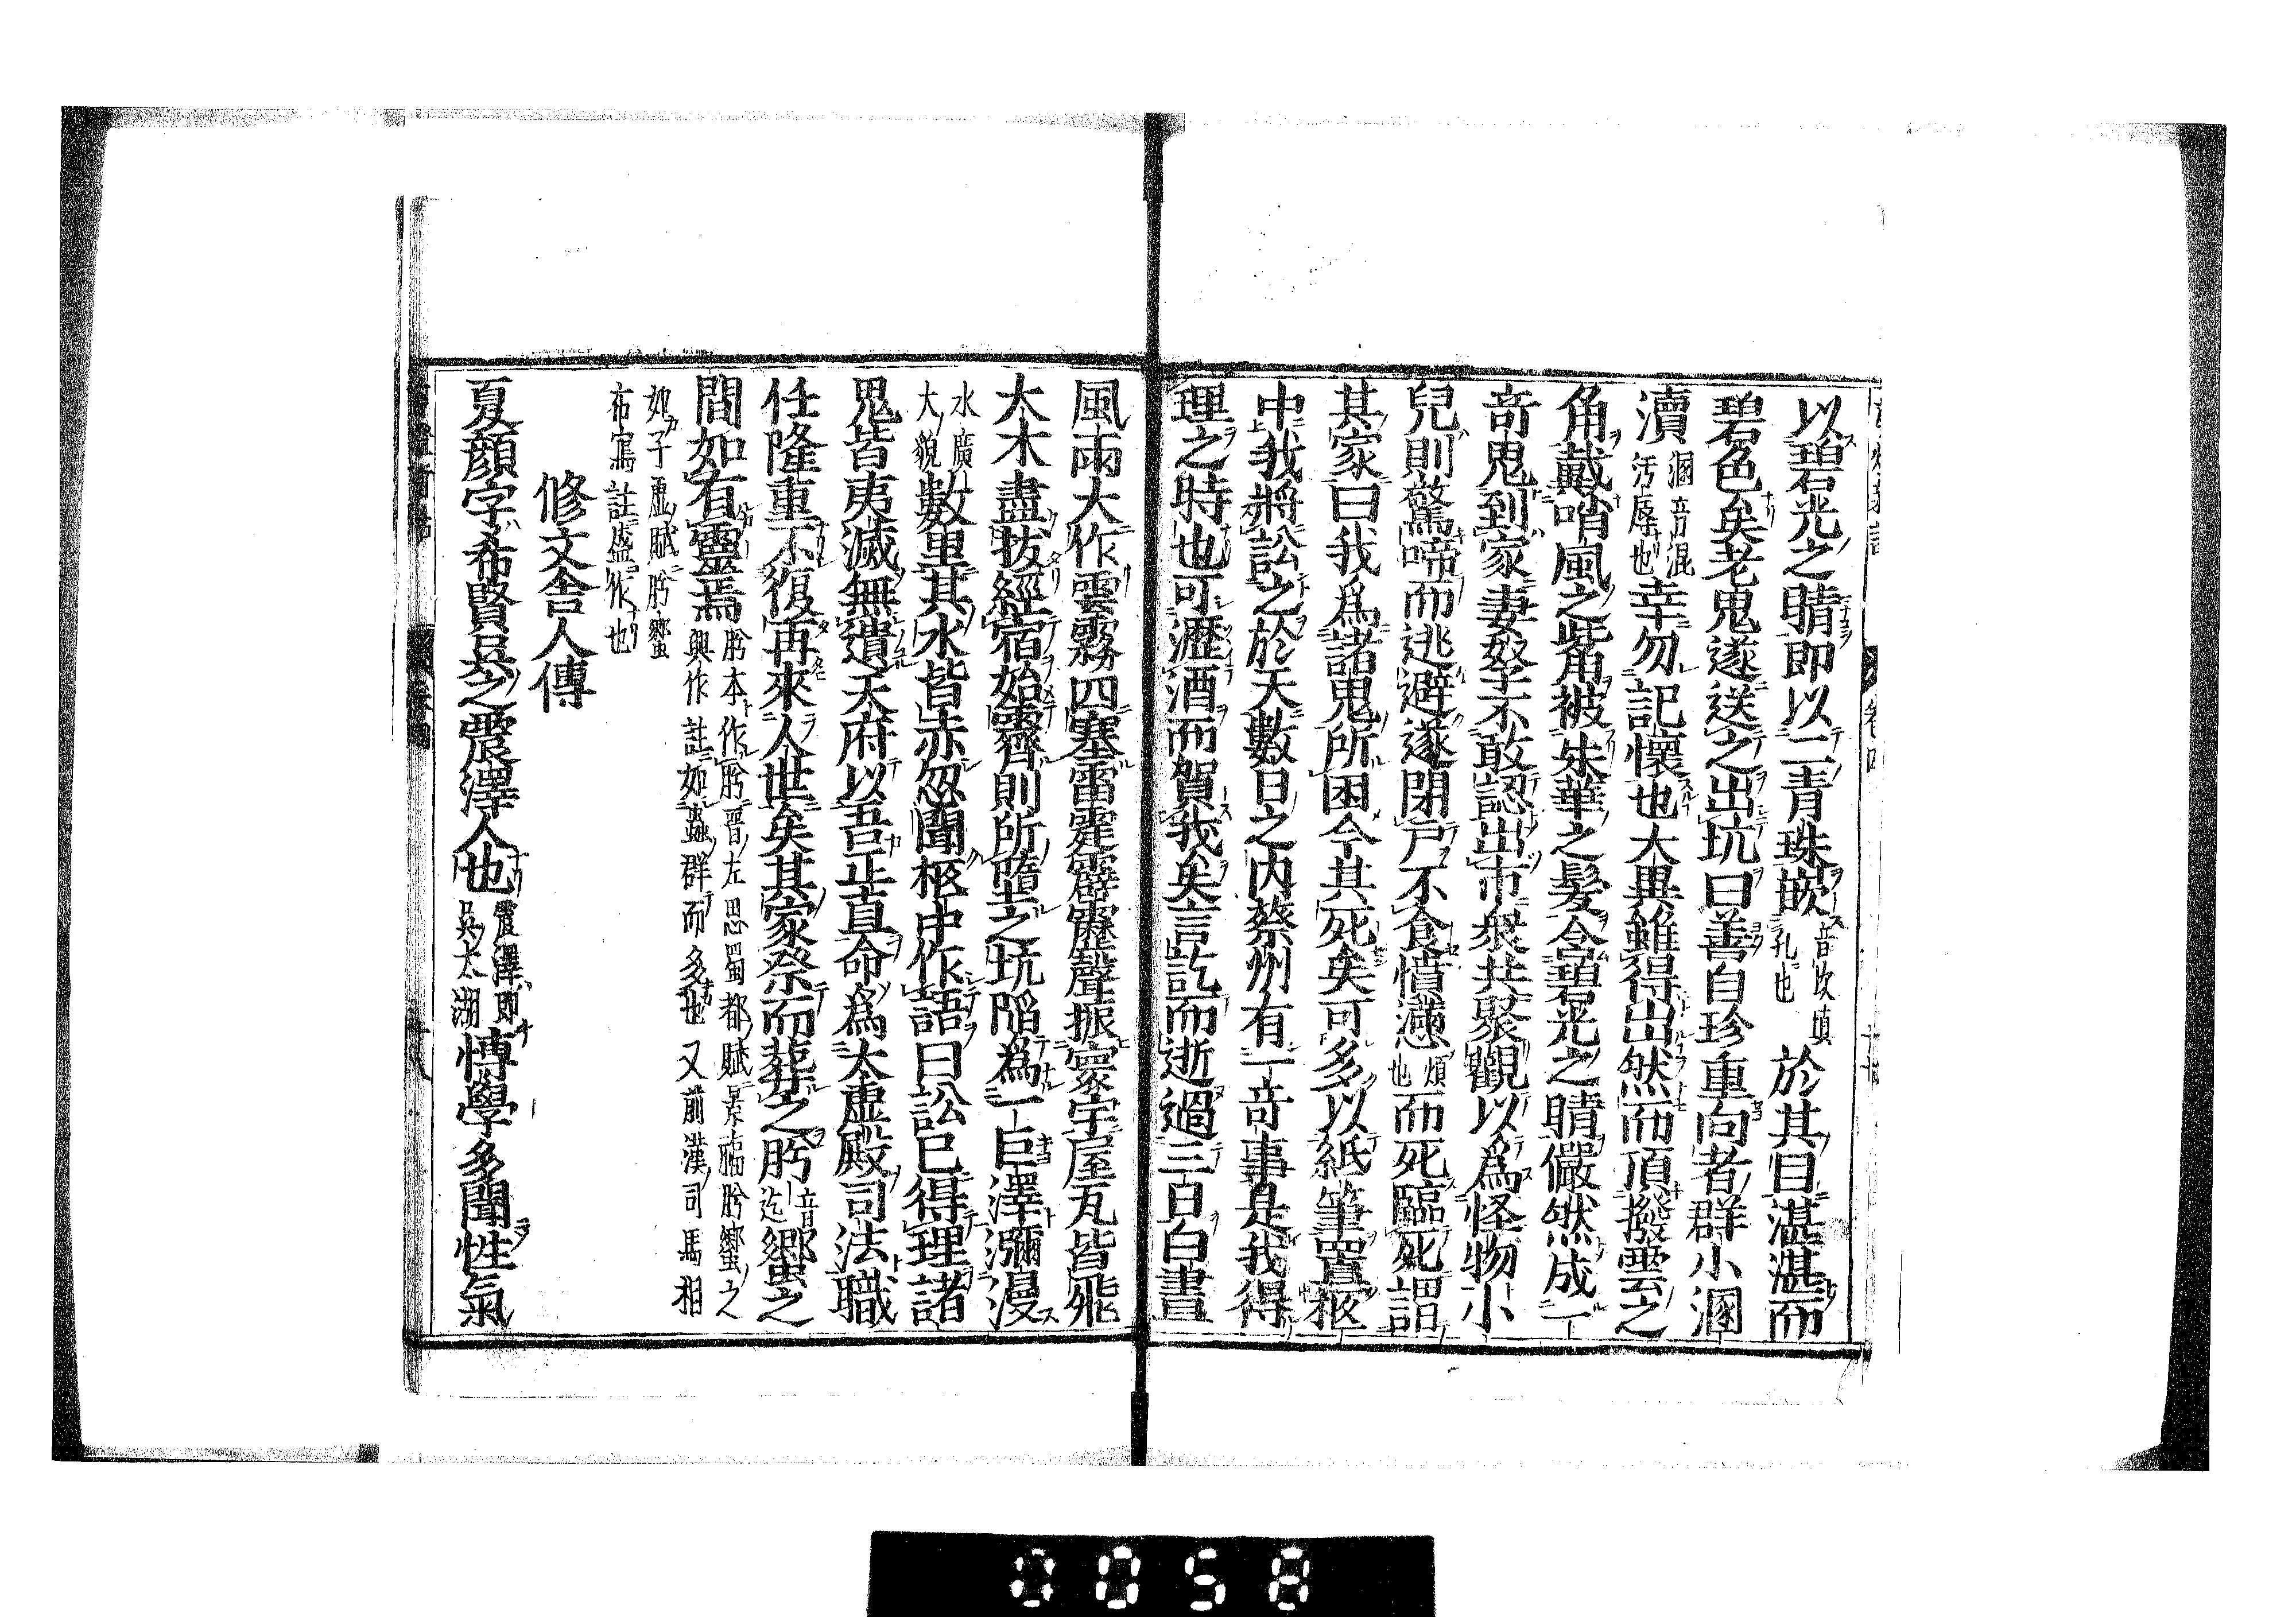 以碧光之睛即以二青珠嵌音坎填孔也於其目湛湛而
碧色矣老鬼遂送之出坑曰善自珍重向者群小溷
瀆溷音混汚辱也幸勿記懷也大異雖得出然而頂撥雲之
角戴哨風之觜被朱華之髮含碧光之睛儼然成一
奇鬼到家妻孥不敢認出市衆共聚觀以爲怪物小
兒則驚啼而逃避遂閉戸不食憤懣煩也而死臨死謂
其家曰我爲諸鬼所困今其死矣可多以紙筆置柩
中我將訟之於天數日之内蔡州有一奇事是我得
理之時也可瀝酒而賀我矣言訖而逝過三日白晝
風雨大作雲霧四塞雷霆霹靂聲振寰宇屋瓦皆飛
大木盡拔經宿始霽則所墮之坑陷爲一巨澤瀰漫
水廣大貌數里其水皆赤忽聞柩中作語曰訟已得理諸
鬼皆夷滅無遺天府以吾正直命爲太虚殿司法職
任隆重不復再來人世矣其家祭而葬之肹音迄蠁之
間如有靈焉肹本作肹晋左思蜀都賦景福肹蠁之興作註如蟲群而多也又前漢司馬相
如子虚賦肹蠁布寫註盛作也
修文舎人傳
夏顔字希賢吳之震澤人也震澤即吳太湖博學多聞性氣
0058